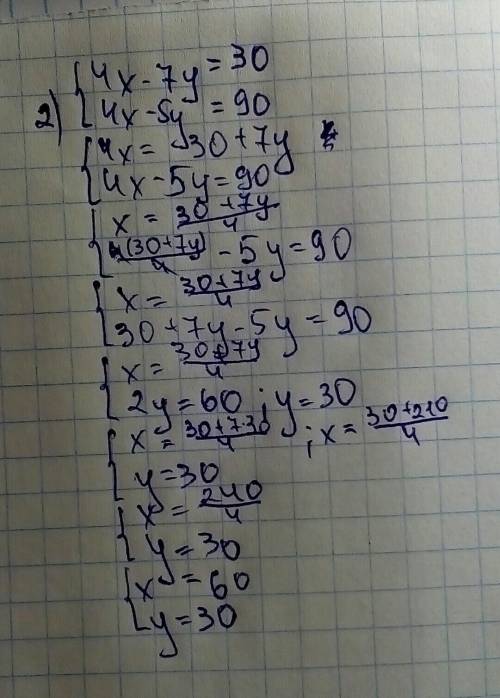 4x - 7y = 30
2) 4x - 5y = 90
4x = 30 + 7y
4x - 5y = 90
x = (30 + 7y)/4
4(30 + 7y)/4 - 5y = 90
x = (30 + 7y)/4
30 + 7y - 5y = 90
x = (30 + 7y)/4
2y = 60 ; y = 30
x = (30 + 7·30)/4 ; x = (30 + 210)/4
y = 30
x = 240/4
y = 30
x = 60
y = 30